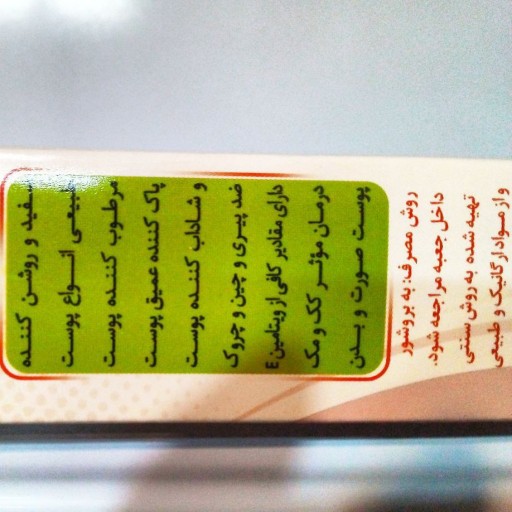 سفید و روشن کننده
طبیعی انواع پوست
مرطوب کننده پوست
پاک کننده عمیق پوست
و شاداب کننده پوست
ضد پیری و چین و چروک
دارای مقادیر کافی از ویتامین E
درمان مؤثر کک و مک
پوست صورت و بدن
روش مصرف: به بروشور
داخل جعبه مراجعه شود.
تهیه شده به روش سنتی
و از مواد ارگانیک و طبیعی